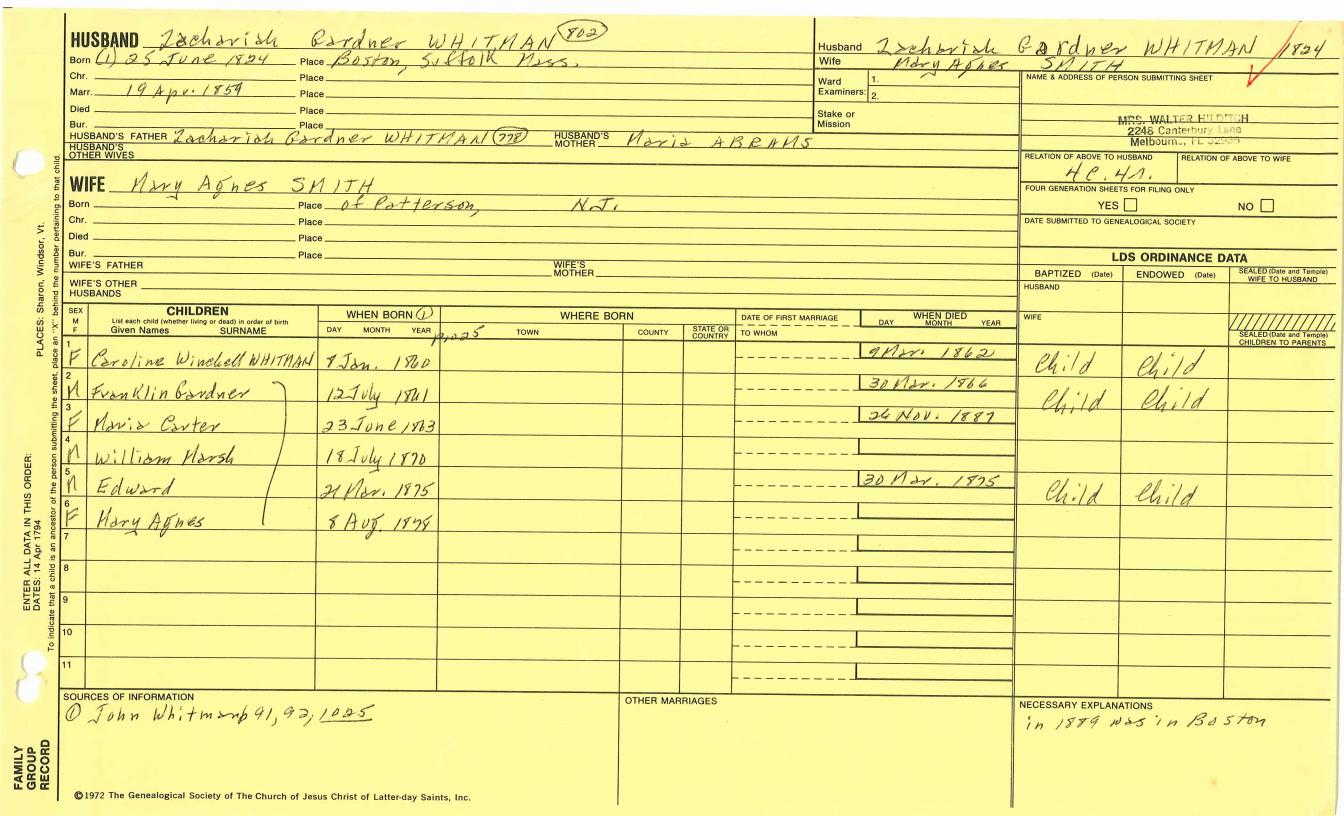 HUSBAND Zachariah Gardner WHITMAN 802
Born (1) 25 June 1824 Place Boston, Suffolk Mass.
Chr. Place
Marr. 19 Apr. 1859 Place
Died Place
Bur. Place
HUSBAND'S FATHER Zachariah Gardner WHITMAN 778 HUSBAND'S MOTHER Maria ABRAMS
HUSBAND'S OTHER WIVES
WIFE Mary Agnes SMITH
Born Place of Patterson, N.J.
Chr. Place
Died Place
Bur. Place
WIFE'S FATHER WIFE'S MOTHER
WIFE'S OTHER HUSBANDS
Husband Zachariah Gardner WHITMAN 1824
Wife Mary Agnes SMITH
Ward Examiners: 1.
2.
Stake or Mission
NAME & ADDRESS OF PERSON SUBMITTING SHEET
MRS. WALTER HILDITCH
2248 Canterbury Lane
Melbourne, FL
RELATION OF ABOVE TO HUSBAND RELATION OF ABOVE TO WIFE
4C.4r.
FOUR GENERATION SHEETS FOR FILING ONLY
YES NO
DATE SUBMITTED TO GENEALOGICAL SOCIETY
LDS ORDINANCE DATA
BAPTIZED (Date) ENDOWED (Date) SEALED (Date and Temple) WIFE TO HUSBAND
HUSBAND
WIFE
SEALED (Date and Temple) CHILDREN TO PARENTS
SEX M F
CHILDREN
List each child (whether living or dead) in order of birth
Given Names SURNAME
WHEN BORN (1)
DAY MONTH YEAR p1025
WHERE BORN
TOWN COUNTY STATE OR COUNTRY
DATE OF FIRST MARRIAGE
TO WHOM
WHEN DIED
DAY MONTH YEAR
1 F Caroline Winchell WHITMAN 8 Jan. 1860 9 Mar. 1862 Child Child
2 M Franklin Gardner 12 July 1861 30 Mar. 1866 Child Child
3 F Maria Carter 23 June 1863 24 Nov. 1887
4 M William Marsh 18 July 1870
5 M Edward 21 Mar. 1875 30 Mar. 1875 Child Child
6 F Mary Agnes 8 Aug. 1878
7
8
9
10
11
SOURCES OF INFORMATION
① John Whitman p 91, 92, 1025
OTHER MARRIAGES
NECESSARY EXPLANATIONS
in 1889 was in Boston
©1972 The Genealogical Society of The Church of Jesus Christ of Latter-day Saints, Inc.
FAMILY GROUP RECORD
ENTER ALL DATA IN THIS ORDER:
DATES: 14 Apr 1794
PLACES: Sharon, Windsor, Vt.
To indicate that a child is an ancestor of the person submitting the sheet, place an "X" behind the number pertaining to that child.